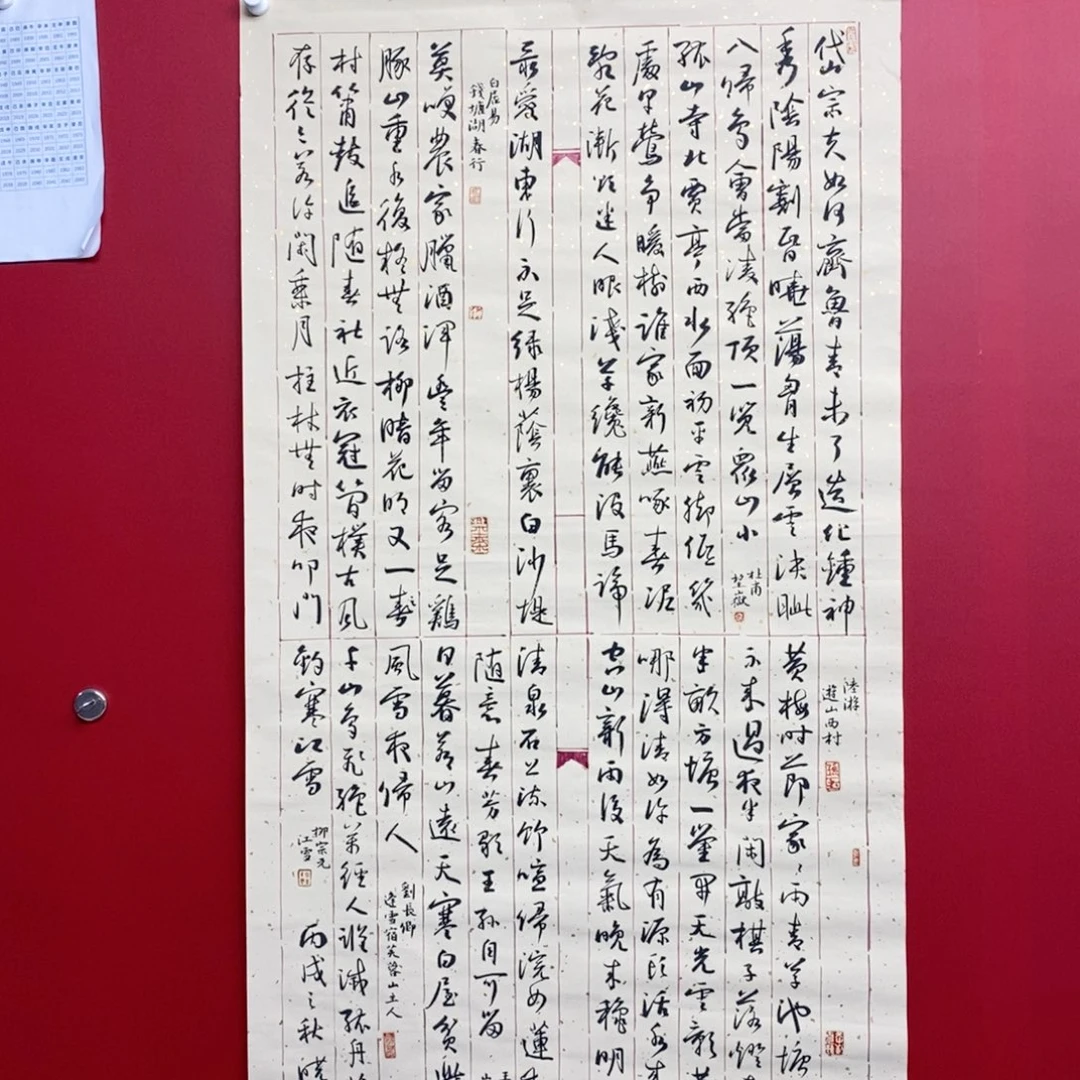 岱宗夫如何齊魯青未了造化鍾神
秀陰陽割昏曉蕩胷生層雲決眦
入歸鳥會當凌絕頂一覽衆山小
杜甫
望嶽
孤山寺北賈亭西水面初平雲腳低幾
處早鶯爭暖樹誰家新燕啄春泥
亂花漸欲迷人眼淺草纔能沒馬蹄
最愛湖東行不足綠楊蔭裏白沙堤
白居易
錢塘湖春行
莫笑農家臘酒渾豐年留客足雞
豚山重水複疑無路柳暗花明又一
村簫鼓追隨春社近衣冠簡樸古風
存從今若許閑乘月拄杖無時夜叩門
陸游
遊山西村
黃梅時節家々雨青草池塘
不來過夜半閑敲棋子落燈
半畝方塘一鑒開天光雲影共
哪得清如許為有源頭活水來
空山新雨後天氣晚來秋明
清泉石上流竹喧歸浣女蓮
隨意春芳歇王孫自可留
日暮蒼山遠天寒白屋貧柴
風雪夜歸人
劉長卿
逢雪宿芙蓉山主人
千山鳥飛絕萬徑人蹤滅孤舟
釣寒江雪
柳宗元
江雪
丙戌之秋曉